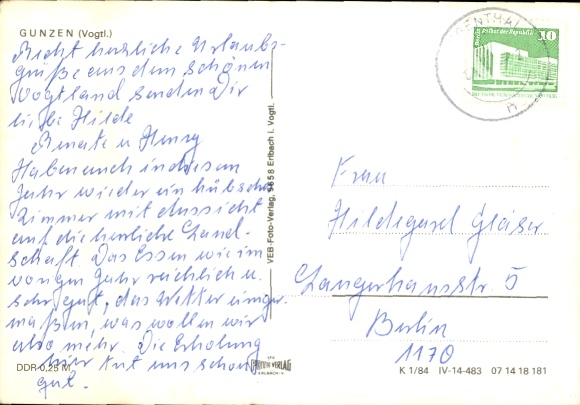 GUNZEN (Vogtl.)
Recht herzliche Urlaubs-
grüße aus dem schönen
Vogtland senden Dir
liebe Hilde
Renate u. Henry
Haben auch in diesem
Jahr wieder ein hübsches
Zimmer mit Aussicht
auf die herrliche Land-
schaft. Das Essen wie im
vorigen Jahr reichlich u.
sehr gut, das Wetter einiger
maßen, was wollen wir
also mehr. Die Erholung
hier tut uns schon
gut.
DDR 0,25 M
VEB-Foto-Verlag, 9658 Erlbach i. Vogtl.
VERLAG
ERLBACH-V.
Berlin Palast der Republik 10
Frau
Hildegard Gläser
Langerhansstr. 5
Berlin
1170
K 1/84 IV-14-483 07 14 18 181